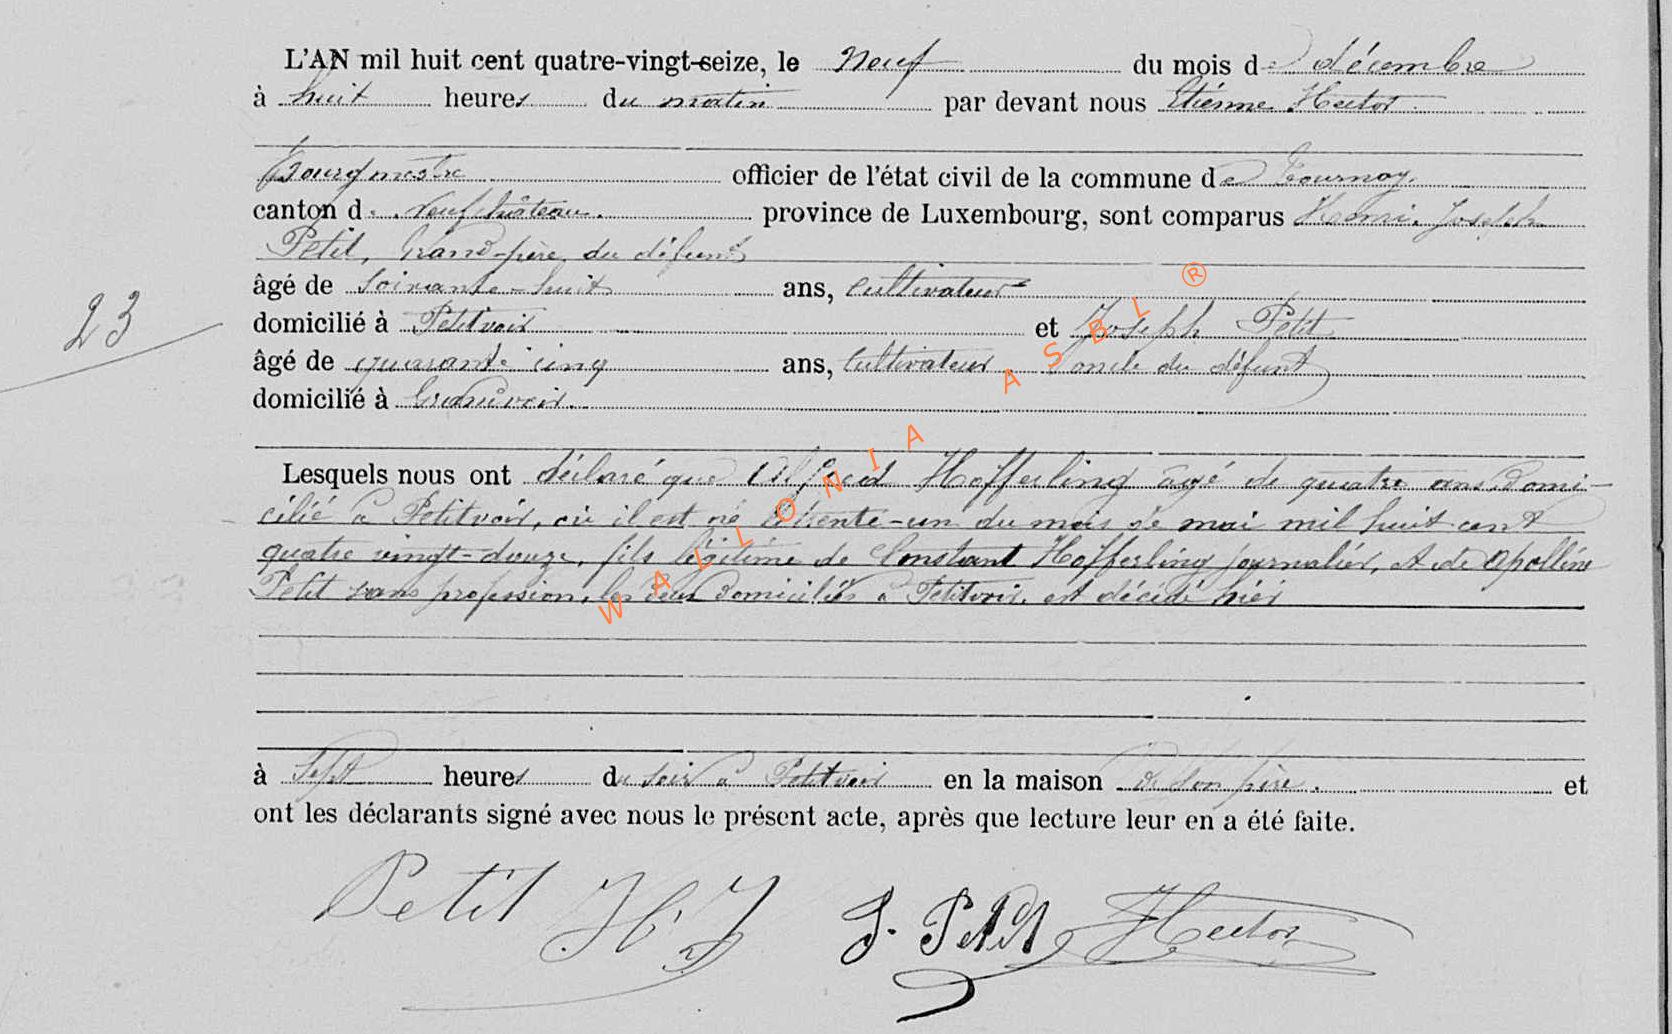 L'AN mil huit cent quatre-vingt-seize, le neuf du mois de décembre
à huit heures du matin par devant nous Etienne Hector
Bourgmestre officier de l'état civil de la commune de Tournay.
canton de Neufchâteau. province de Luxembourg, sont comparus Henri Joseph
Petit, Grand-père du défunt
âgé de soixante-huit ans, cultivateur
domicilié à Petitvoir et Joseph Petit
23
âgé de quarante cinq ans, cultivateur oncle du défunt
domicilié à Grandvoir.
Lesquels nous ont déclaré que Alfred Hofferling âgé de quatre ans domi-
cilié à Petitvoir, où il est né le trente-un du mois de mai mil huit cent
quatre vingt-douze, fils légitime de Constant Hofferling journalier, et de Apolline
Petit sans profession, les deux domiciliés à Petitvoir, est décédé hier
à sept heures du soir à Petitvoir en la maison de son père. et
ont les déclarants signé avec nous le présent acte, après que lecture leur en a été faite.
Petit H. J J. Petit Hector
WALLONIA ASBL ®